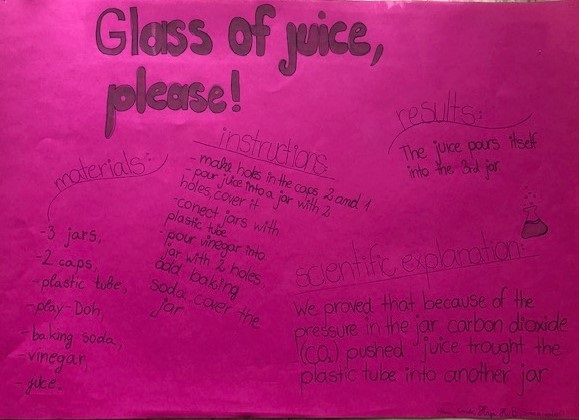 Glass of juice,
please!
materials:
-3 jars,
-2 caps,
-plastic tube,
-play-Doh,
-baking soda,
-vinegar,
-juice.
instructions:
- make holes in the caps 2 and 1
- pour juice into a jar with 2
holes, cover it
- conect jars with
plastic tube
- pour vinegar into
jar with 2 holes
add baking
soda cover the
jar
results:
The juice pours itself
into the 3rd jar
scientific explanation:
We proved that because of the
pressure in the jar carbon dioxide
(CO2) pushed juice trought the
plastic tube into another jar